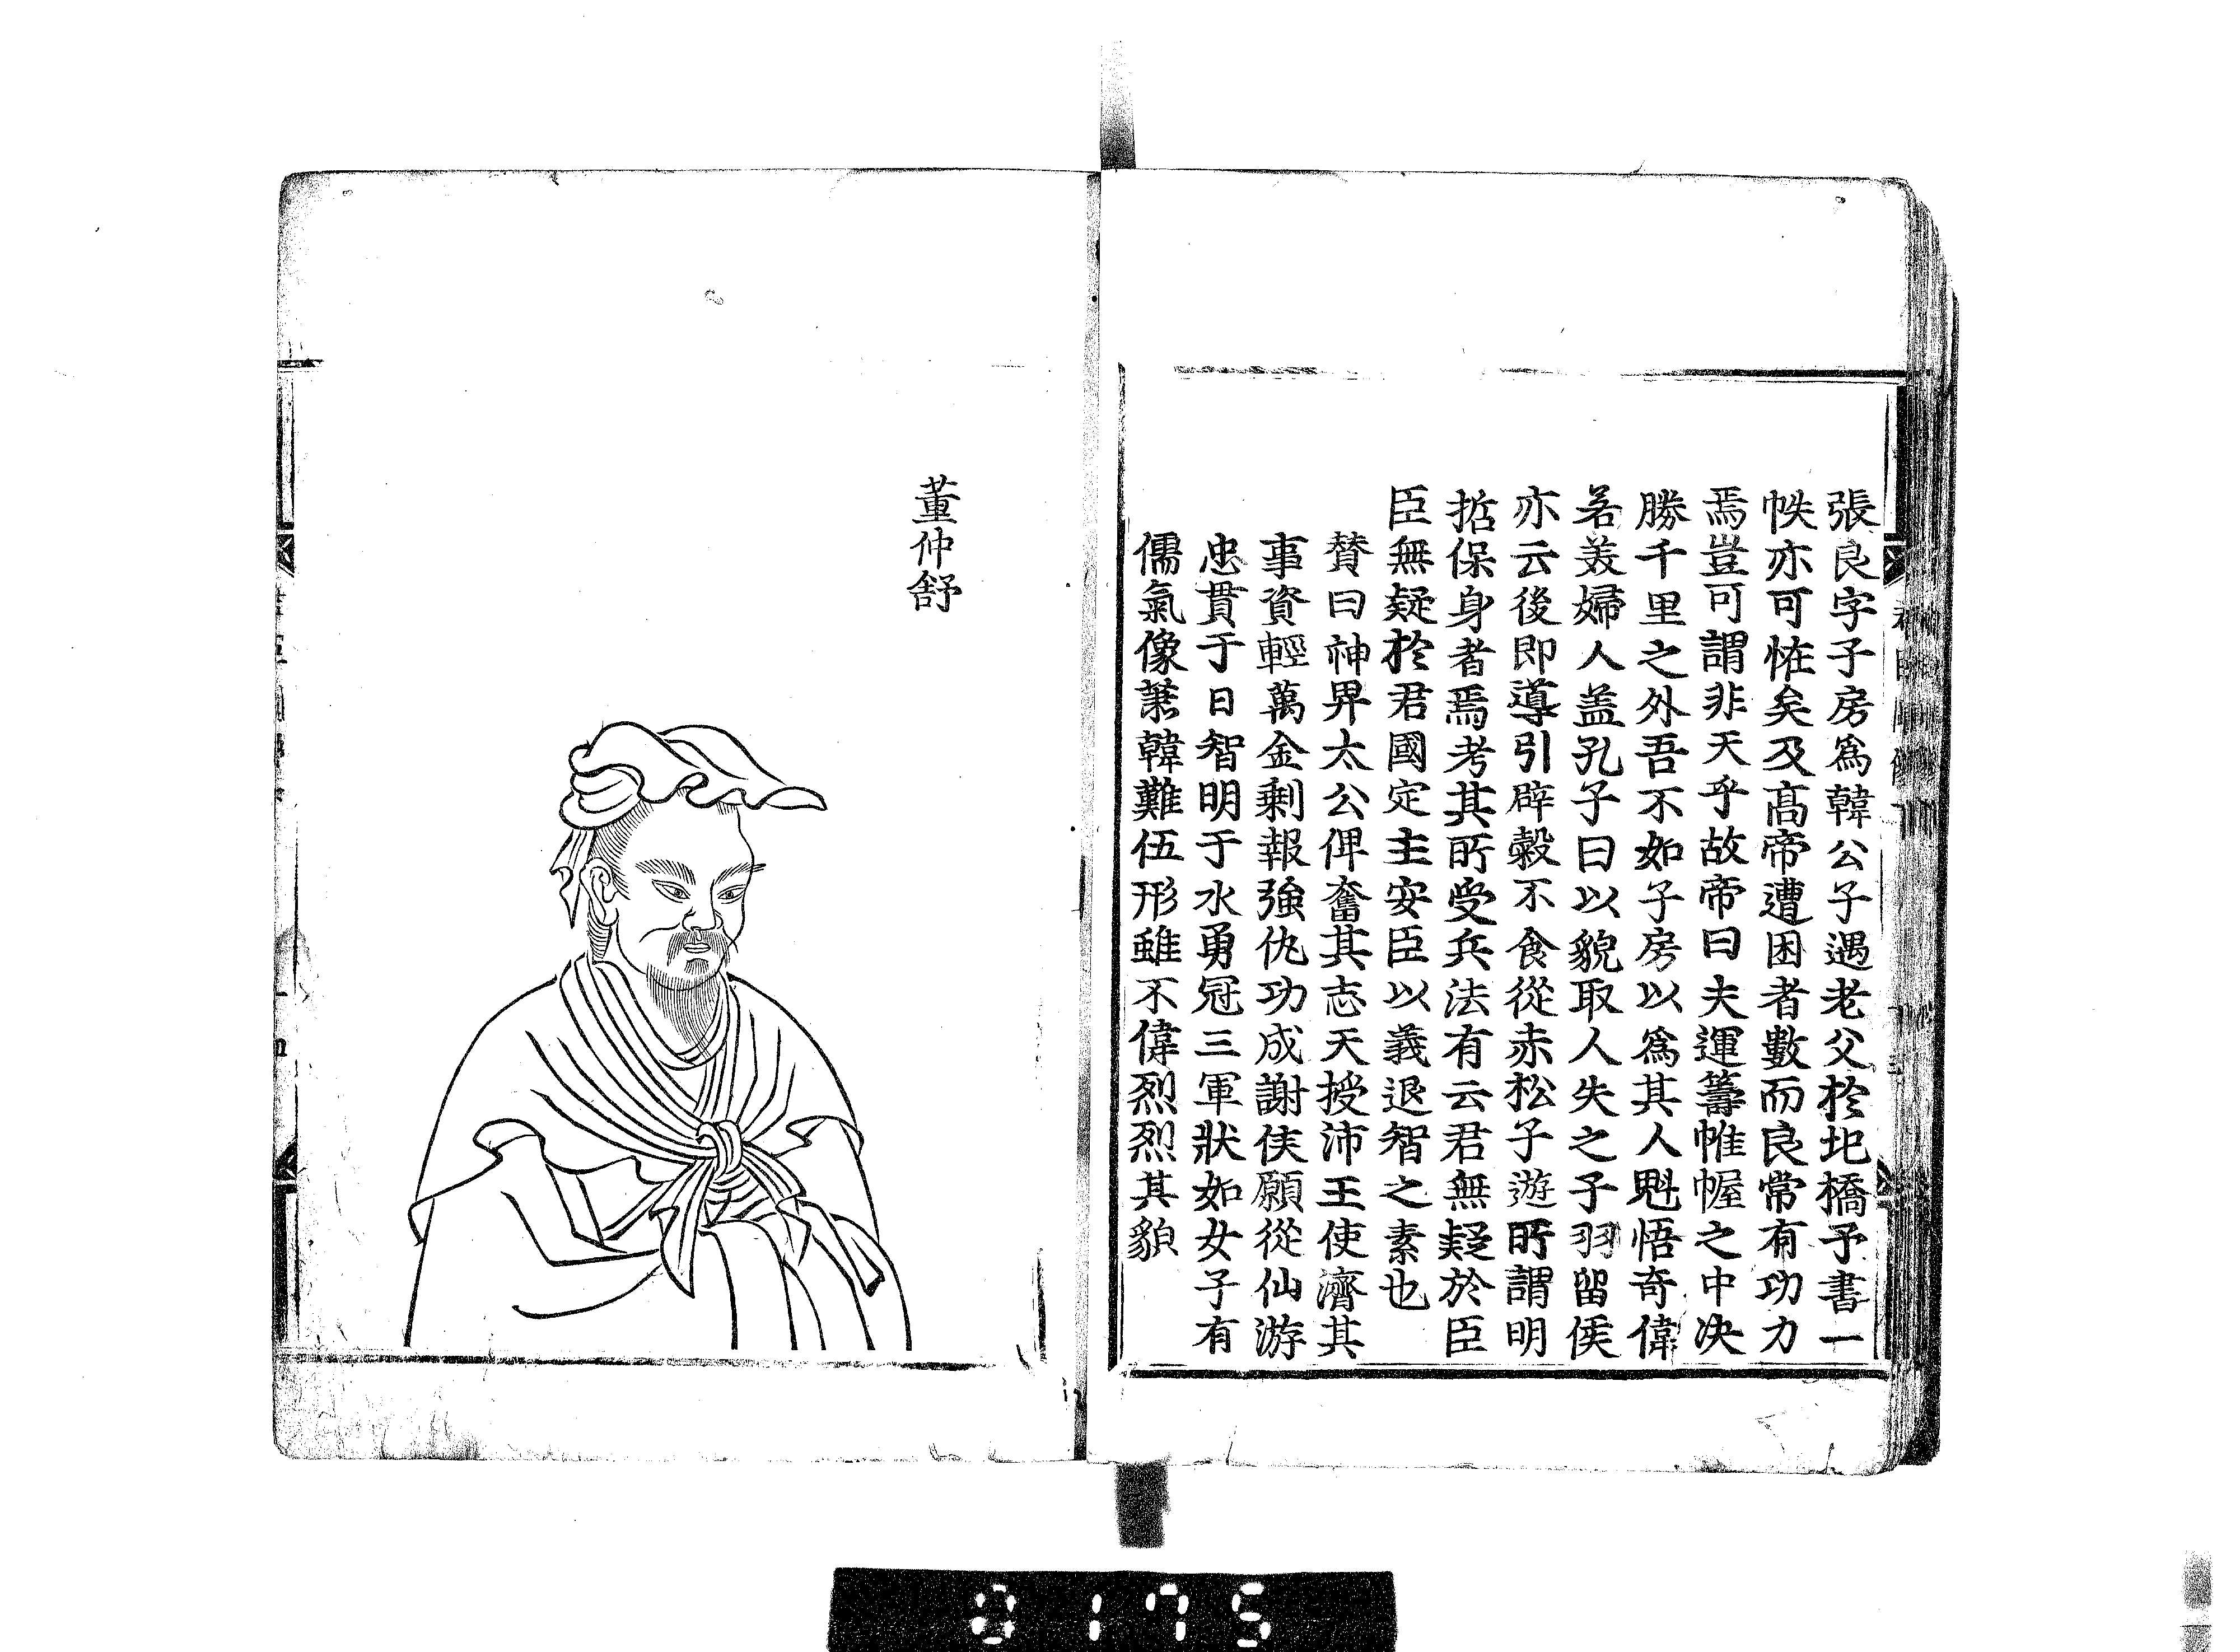 張良字子房爲韓公子遇老父於圯橋予書一
帙亦可恠矣及髙帝遭困者數而良常有功力
焉豈可謂非天乎故帝曰夫運籌帷幄之中决
勝千里之外吾不如子房以爲其人魁悟奇偉
若美婦人盖孔子曰以貌取人失之子羽留侯
亦云後即導引辟糓不食從赤松子遊所謂明
哲保身者焉考其所受兵法有云君無疑於臣
臣無疑於君國定主安臣以義退智之素也
賛曰神畀太公俾奮其志天授沛王使濟其
事資輕萬金剰報強仇功成謝侯願從仙游
忠貫于日智明于水勇冠三軍狀如女子有
儒氣像業韓難伍形雖不偉烈烈其貌
董仲舒
0175